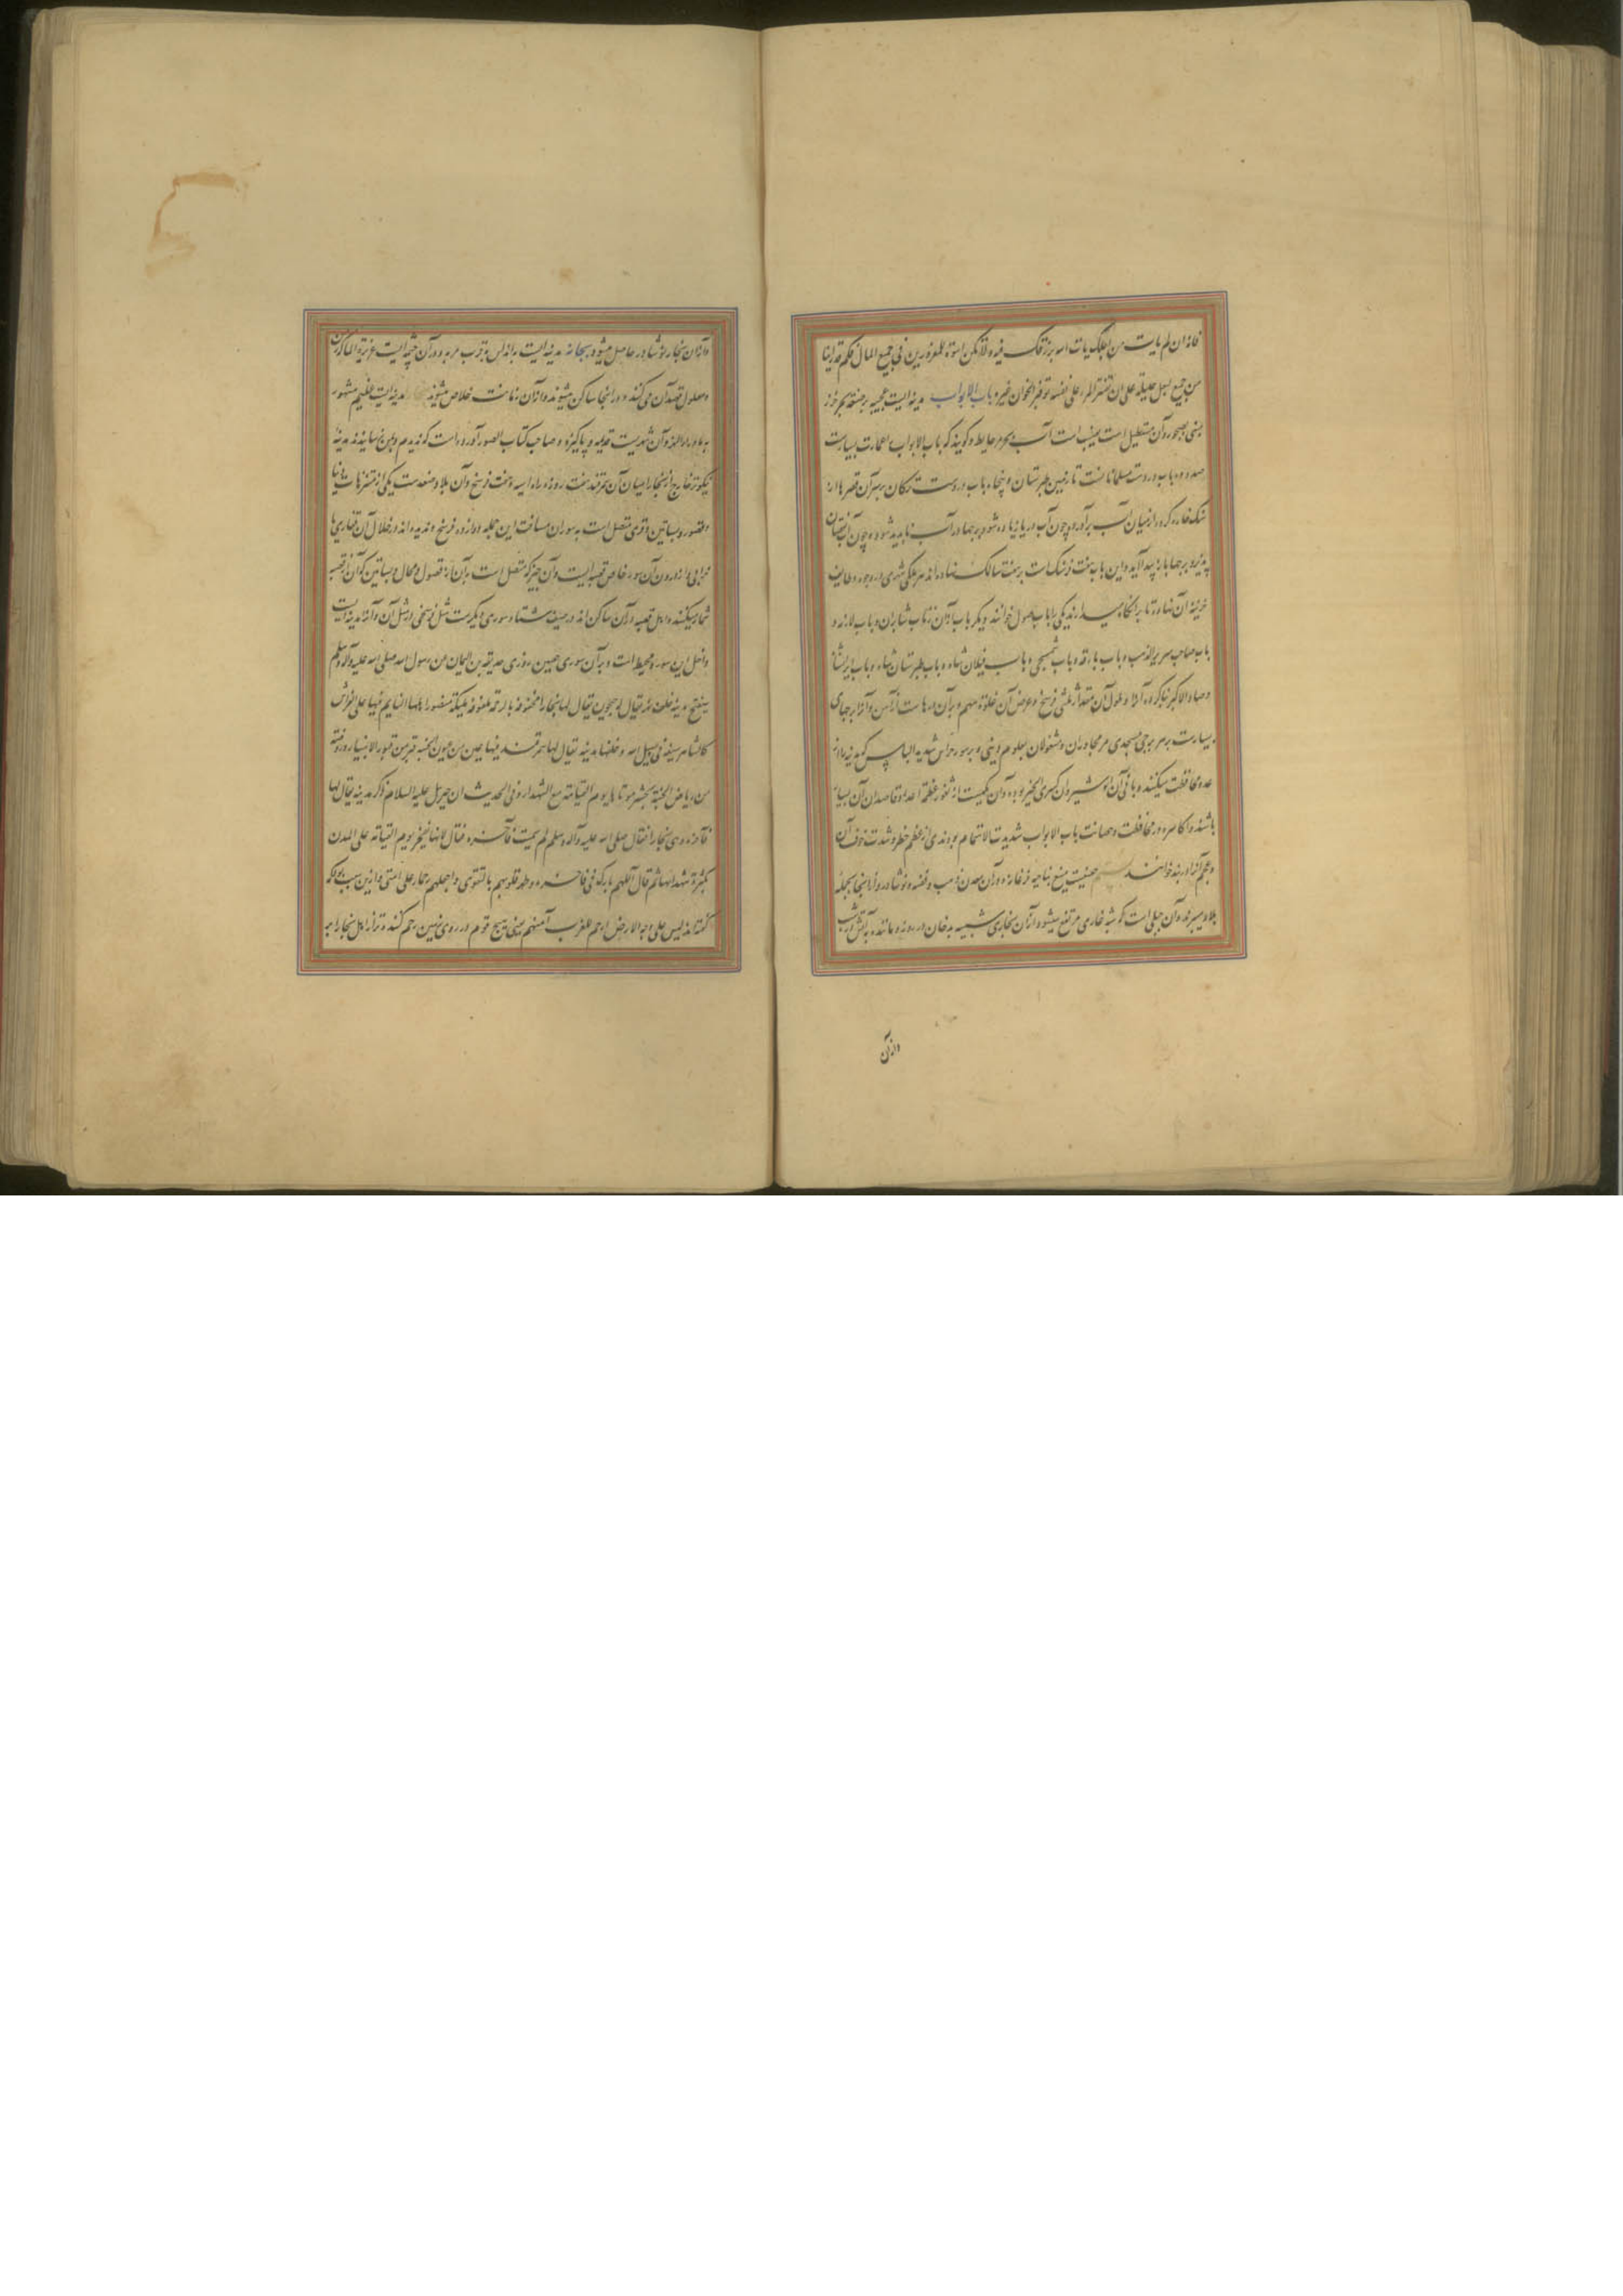 فانه ان لم یات من اجلک یات الله برزقک فیه و لا تکن اسوة للمغرورین فی جمیع المال فکم قد راینا
من جمیع لبعل حلیلته علی ان تقتر المرء علی نفسه توفیر لخزان غیره باب الابواب مدینه ایست عجیبه بر ضفه بحر خزر
مبنی بصخور و آن مستطیل است آب بحر بر حایط و گویند که باب الابواب و العمارت بسیارست
صد و ده باب در دست مسلمانانست تا زمین طبرستان و پنجاه باب در دست ترکان بر سر آن قصرها از
سنگ خاره کرده از میان آب برآورده چون آب دریا زیاده شود برجها در آب ناپدید شود و چون آب نقصان
پذیرد برجها باز پیدا آید و این باب هفت فرسنگ است بر هفت مسالک نهاده اند هر ملکی شهری
خزینه آن نهاده تا بر نگاه میدارند یکی را باب صول خوانند و دیگر باب الان و باب شابران و باب لازقه و
باب صاحب سریر الذهب و باب بارقه و باب سمسجی و باب فیلان شاه و باب طبرستان شاه و باب ایرانشاه
و طول آن مقدار ثلثی فرسخ و عرض آن غلوة سهم و بر آن درهاست از آهن و آنرا برجهای
بسیارست بر هر برجی مسجدی مر مجاوران و مشغولان بعلوم دینی و بر سور حراس شدید الباس که مدینه را از
عدو محافظت میکنند و بانی آن انوشیروان کسری الخیر بوده و آن یکیست از ثغور عظیمه اعدا و قاصدان آن بسیار
باشند و اکاسره در محافظت و صیانت باب الابواب شدیدت الاهتمام بودندی از عظم خطر و شدت خوف آن
و عجم آنرا دربند خوانند حصنیست منیع بناحیه فرغانه و در آن معدن ذهب و فضه و نوشادر و از اینجا بجمله
بلاد میبرند و آن جبلی است که شبه غاری مرتفع میشود و از آن بخاری شبیه به دخان در روز و مانند به آتش در شب
و از آن
و از آن بخار نوشادر حاصل میشود بجانه مدینه ایست به اندلس بقرب مریه و در آن چشمه ایست غزیرة الماء که زمن
و معلول قصد آن می کنند و در اینجا ساکن میشوند و از آن زمانت خلاص میشوند مدینه ایست عظیم مشهور
به ماوراء النهر و آن شهریست قدیم و پاکیزه و صاحب کتاب الصور آورده است که ندیدم و بمن نرسانیدند مدینهٔ
نیکوتر خارج از بخارا میان آن سمرقند هفت روزه راه است و هفت فرسخ و آن بلاد صغدست یکی از متنزهات دنیا
و قصور و بساتین و قری متصل است به سوران مسافت این جمله دوازده فرسخ و ندیده اند در خلال آن قفاری یا
خرابی و از درون آن سور خاص قصبه ایست و آن چیز که متصل است بر آن از قصور و محال و بساتین که آن از قصبه
شمار میکنند و اهل قصبه در آن ساکن اند در صیف و شتا و سوری دیگرست مثل فرسخی در مثل آن و آنرا مدینه ایست
داخل این سور و محیط است و بر آن سوری حصین روزی حذیفة بن الیمان من رسول الله صلی الله علیه و آله و سلم
سیفتح مدینه خلف نهر یقال له جیحون یقال لها بخارا محفوفه بالرحمة ملفوفة بالملئکة منصور اهلها النایم فیها علی الفراش
کالشاهر سیفه فی سبیل الله و خلفها مدینه یقال لها سمرقند فیها عین من عیون الجنة و قبر من قبور الانبیاء و روضة
من ریاض الجنة یحشر موتاها یوم القیامة مع الشهداء و فی الحدیث ان جبریل علیه السلام ذکر مدینه یقال لها
فاخره و هی بخارا فقال صلی الله علیه و آله و سلم لم سمیت فاخره فقال لانها یفخر یوم القیامة علی المدن
بکثرة شهدائها ثم قال اللهم بارک فی فاخره و طهر قلوبهم بالتقوی و اجعلهم رحماء علی امتی و ازین سبب بود که
گفته اند لیس علی وجه الارض ارحم للغریب منهم یعنی هیچ قوم در روی زمین رحم کننده تر از اهل بخارا به